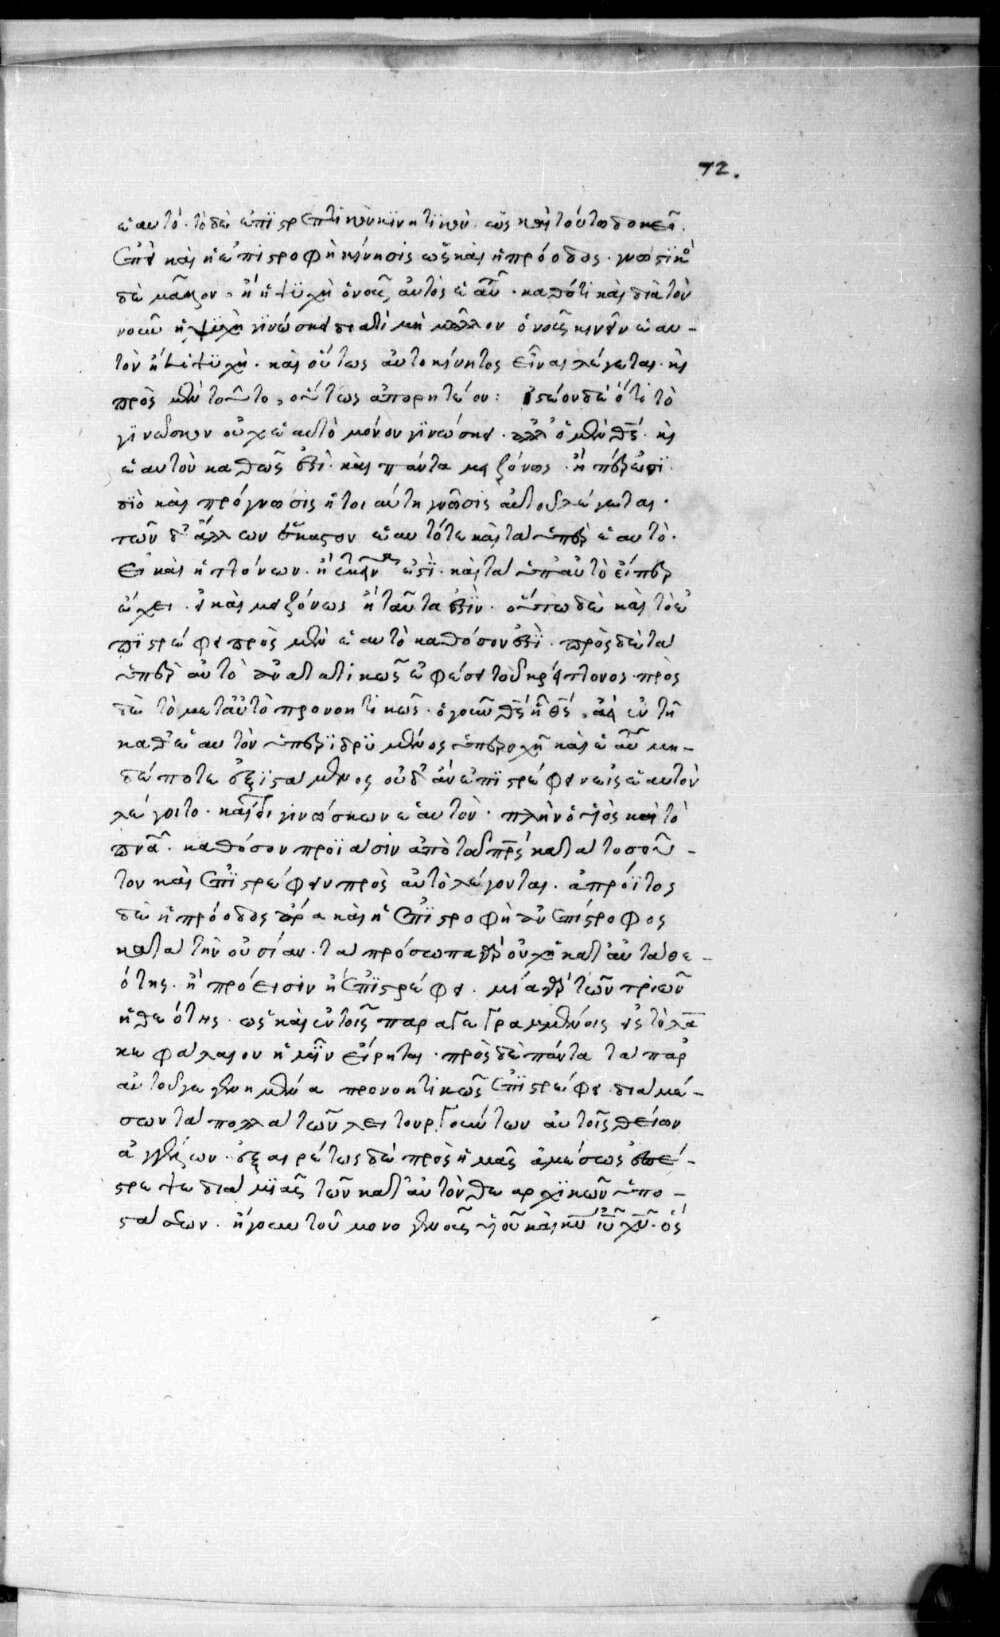 72.
ἑαυτό· τὸ δὲ ἐπιστρεπτικὸν κινητικὸν· ὡς καὶ τούτω δοκεῖ.
ἐπεὶ καὶ ἡ ἐπιστροφὴ κίνησις ὡς καὶ ἡ πρόοδος· γνωστικὴ
δὲ μᾶλλον, ἢ ἡ ψυχὴ ὁ νοῦς αὐτὸς ἑαυτοῦ· καθότι καὶ διὰ τὸν
νοῦν ἡ ψυχὴ γινώσκει διατί μὴ μᾶλλον ὁ νοῦς κινεῖν ἑαυ-
τὸν ἢ ἡ ψυχὴ· καὶ οὕτως αὐτοκίνητος εἶναι λέγεται· καὶ
πρὸς μὲν τοῦτο, οὕτως ἀπορητέον: ἰστέον δὲ ὅτι τὸ
γινῶσκον οὐχ ἑαυτὸ μόνον γινώσκει· ἀλλ' ὁ μὲν θεός· καὶ
ἑαυτὸν καθὼς ἐστὶ· καὶ πάντα μειζόνως· ἢ πέρ εἰσι
διὸ καὶ πρόγνωσις ἤτοι αὕτη γνῶσις αὐτοῦ λέγεται.
τῶν δ' ἄλλων ἕκαστον ἑαυτό τε καὶ τὰ ὑπὲρ ἑαυτό.
εἰ καὶ ἡττόνως· ἢ ἐκεῖνα ἐστὶ· καὶ τὰ ὑπ' αὐτὸ εἴπερ
ἔχει· εἰ καὶ μειζόνως ἢ ταῦτα ἐστὶν· οὕτω δὲ καὶ τὸ ἐ
πιστρέφει πρὸς μὲν ἑαυτὸ καθόσον ἐστὶ· πρὸς δὲ τὰ
ὑπὲρ αὐτὸ ἀνατατικῶς ἐφέσει τοῦ κρείττονος· πρὸς
δὲ τὸ μετ' αὐτὸ προνοητικῶς· ὁ γοῦν θεὸς ᾗ θεός, ἀεὶ ἐν τῇ
καθ' ἑαυτὸν ὑπεριδρυμένος ὑπεροχῇ καὶ ἑαυτοῦ μη-
δέποτε ἐξιστάμενος οὐδ' ἂν ἐπιστρέφειν εἰς ἑαυτὸν
λέγοιτο· καίτοι γινώσκων ἑαυτὸν· πλὴν ὁ υἱὸς καὶ τὸ
πνᾶ· καθόσον προΐασιν ἀπὸ τοῦ πρς κατὰ τοσοῦ-
τον καὶ ἐπιστρέφειν πρὸς αὐτὸ λέγονται. ἀπρόϊτος
δὲ ἡ πρόοδος ἄρα καὶ ἡ ἐπιστροφὴ ἀνεπίστροφος
κατὰ τὴν οὐσίαν· τὰ πρόσωπα γὰρ οὐχ ἡ κατ' αὐτὰ θε-
ότης· ἢ πρόεισιν ἢ ἐπιστρέφει· μία γὰρ τῶν τριῶν
ἡ θεότης· ὡς καὶ ἐν τοῖς παραγεγραμμένοις εἰς τὸ λα
κεφάλαιον ἡμῖν εἴρηται· πρὸς δὲ πάντα τὰ παρ'
αὐτοῦ γεγενημένα προνοητικῶς ἐπιστρέφει διὰ μέ-
σων τὰ πολλὰ τῶν λειτουργούντων αὐτοῖς θείων
ἀγγέλων· ἐξαιρέτως δὲ πρὸς ἡμᾶς ἀμέσως ἐπέ-
στρεψε διὰ μιᾶς τῶν κατ' αὐτὸν θεαρχικῶν ὑπο-
στάσεων· ἤγουν τοῦ μονογενοῦς υἱοῦ καὶ κυ ἰυ χυ· ὃς